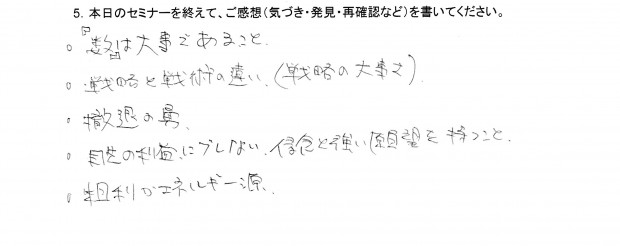 5. 本日のセミナーを終えて、ご感想（気づき・発見・再確認など）を書いてください。
。『数』は大事であること。
。戦略と戦術の違い。（戦略の大事さ）
。撤退の勇。
。目先の利益にブレない。信念と強い願望を持つこと。
。粗利がエネルギー源。